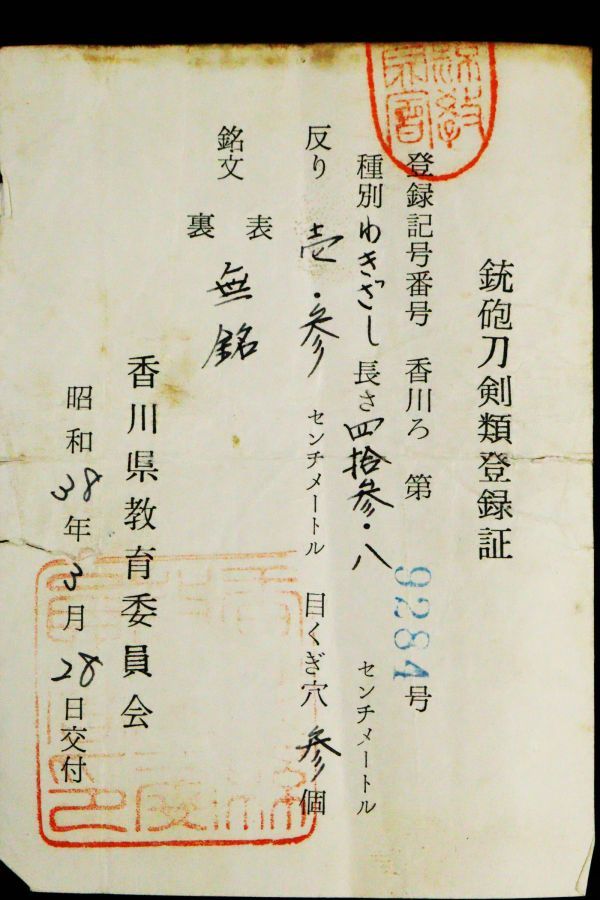 銃砲刀剣類登録証
登録記号番号 香川ろ 第 9284 号
種別 わきざし 長さ 四拾参・八 センチメートル
反り 壱・参 センチメートル 目くぎ穴 参 個
銘文 表 裏 無銘
香川県教育委員会
昭和38年3月28日交付